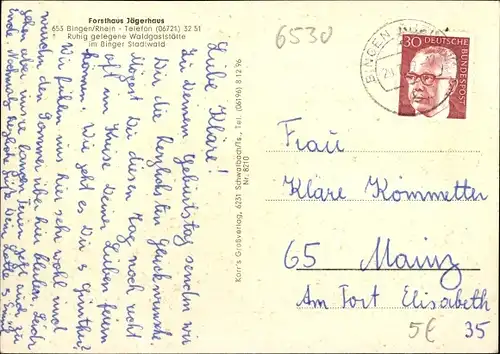 Forsthaus Jägerhaus
653 Bingen/Rhein - Telefon (06721) 32 51
Ruhig gelegene Waldgaststätte
im Binger Stadtwald
Liebe Kläre!
Zu Deinem Geburtstag senden wir
Dir die herzlichsten Glückwünsche.
Mögest Du diesen Tag noch recht
oft im Kreise Deiner Lieben feiern
können. Wie geht es Dir & Günther?
Wir fühlen uns hier sehr wohl und
werden den Sommer über hier bleiben. Doch
Karr's Großverlag, 6231 Schwalbach/Ts., Tel. (06196) 8 12 96
Nr. 8210
6530
BINGEN
30 DEUTSCHE BUNDESPOST
Frau
Kläre Kömmetter
65 Mainz
Am Fort Elisabeth
35
5€